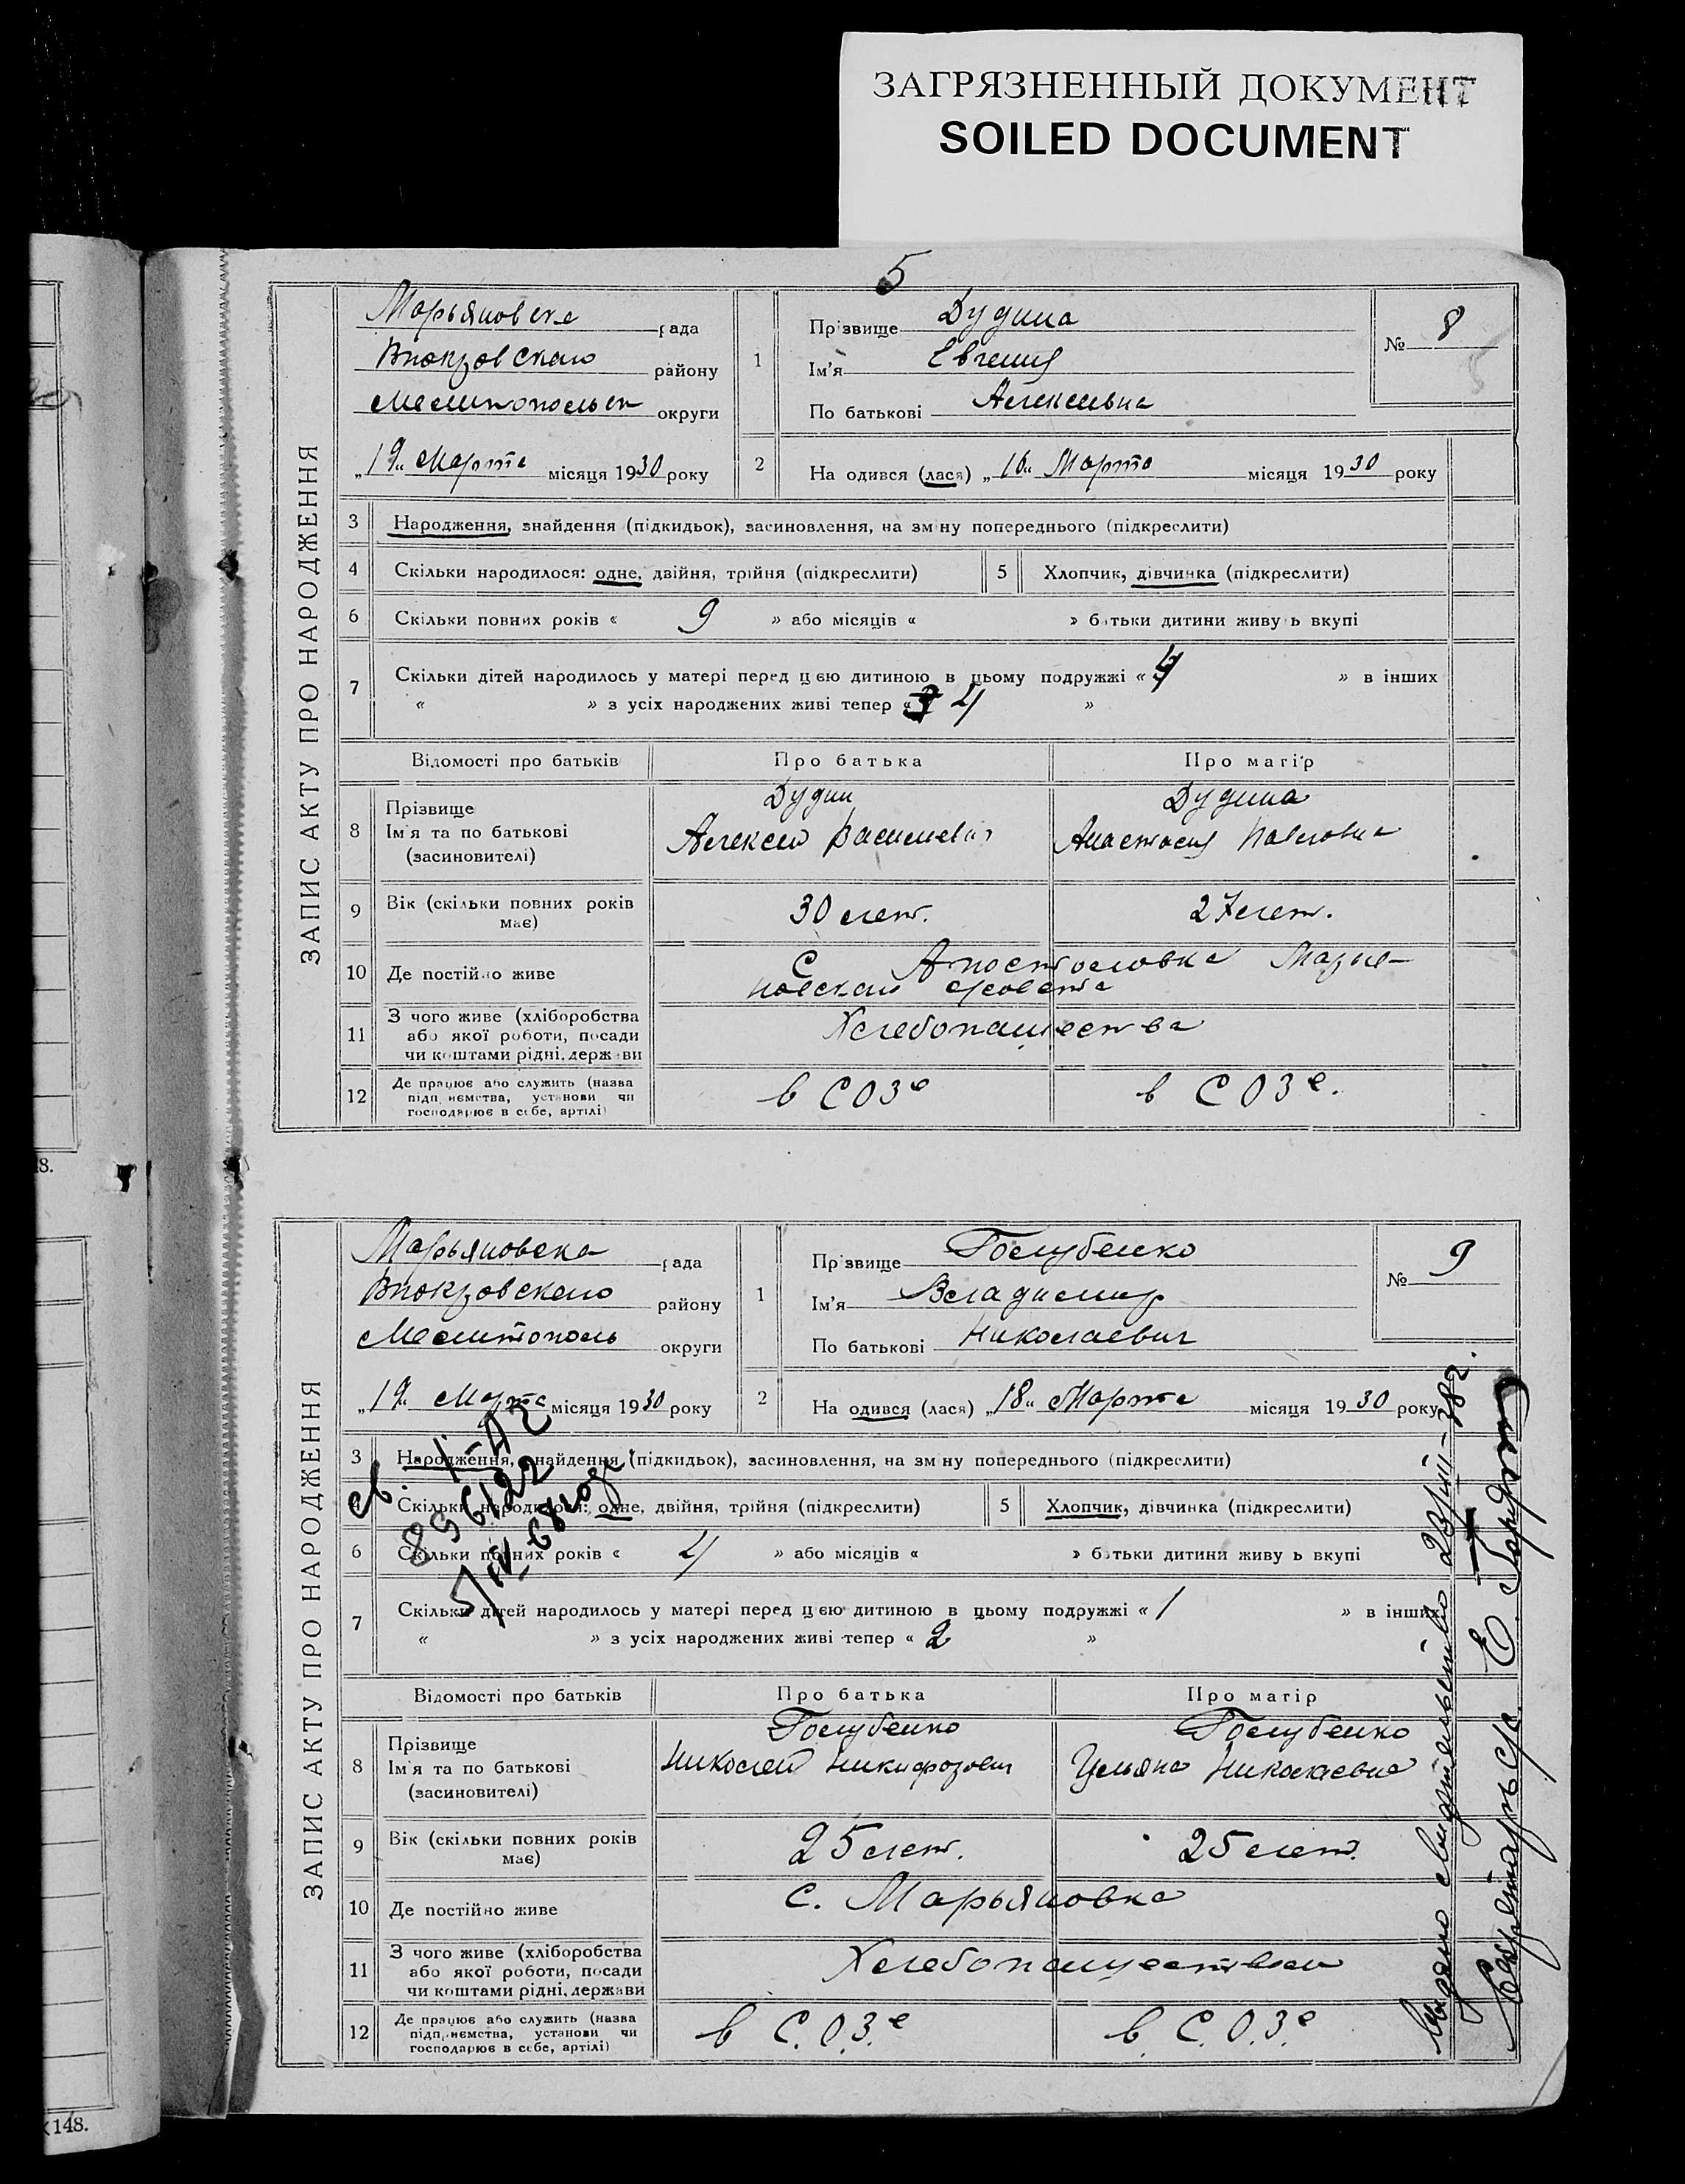 ЗАГРЯЗНЕННЫЙ ДОКУМЕНТ
SOILED DOCUMENT
5
ЗАПИС АКТУ ПРО НАРОДЖЕННЯ
Марьяновска рада
району
Мелитопольск округи
„19“ Марта місяця 1930 року
1
Прізвище Дудина
Ім'я Евгения
По батькові Алексеевна
№ 8
2
Народився (лася) „16“ Марта місяця 1930 року
3 Народження, знайдення (підкидьок), засиновлення, на зміну попереднього (підкреслити)
4 Скільки народилося: одне, двійня, трійня (підкреслити)
5 Хлопчик, дівчинка (підкреслити)
6 Скільки повних років « 9 » або місяців « » батьки дитини живуть вкупі
7 Скільки дітей народилось у матері перед цією дитиною в цьому подружжі « 4 » в інших
« » з усіх народжених живі тепер « 4 »
Відомості про батьків Про батька Про матір
8 Прізвище
Ім'я та по батькові
(засиновителі)
Дудин
Алексей Васильевич
Дудина
Анастасия Павловна
9 Вік (скільки повних років
має)
30 лет. 27 лет.
10 Де постійно живе
С Апостоловка Марья-
новской с/совета
11 З чого живе (хліборобства
або якої роботи, посади
чи коштами рідні, держави
Хлебопашества
12 Де працює або служить (назва
підприємства, установи чи
господарює в себе, артілі)
в СОЗе в СОЗе.
ЗАПИС АКТУ ПРО НАРОДЖЕННЯ
Марьяновска рада
району
Мелитополь округи
„19“ Марта місяця 1930 року
1
Прізвище Голубенко
Ім'я Владимир
По батькові Николаевич
№ 9
2
Народився (лася) „18“ Марта місяця 1930 року
3 Народження, знайдення (підкидьок), засиновлення, на зміну попереднього (підкреслити)
4 Скільки народилося: одне, двійня, трійня (підкреслити)
5 Хлопчик, дівчинка (підкреслити)
6 Скільки повних років « 4 » або місяців « » батьки дитини живуть вкупі
7 Скільки дітей народилось у матері перед цією дитиною в цьому подружжі « 1 » в інших
« » з усіх народжених живі тепер « 2 »
Відомості про батьків Про батька Про матір
8 Прізвище
Ім'я та по батькові
(засиновителі)
Голубенко
Николай Никифорович
Голубенко
Ульяна Николаевна
9 Вік (скільки повних років
має)
25 лет. 25 лет.
10 Де постійно живе
с. Марьяновка
11 З чого живе (хліборобства
або якої роботи, посади
чи коштами рідні, держави
Хлебопашеством
12 Де працює або служить (назва
підприємства, установи чи
господарює в себе, артілі)
в С.О.З.е в. С.О.З.е
св. I-АГ
856122
5/IV 68 года
Выдано свидетельство 23/VIII-38 г.
Секретарь с/с. Е.
8.
148.